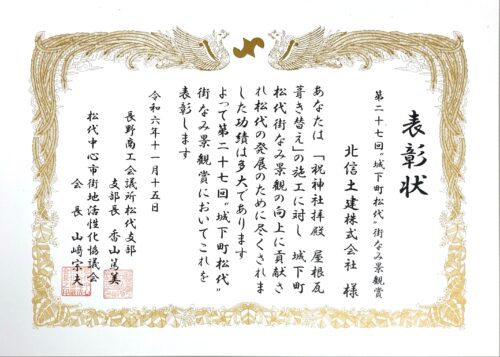 表彰状
第二十七回〝城下町松代〟街なみ景観賞
北信土建株式会社 様
あなたは 「祝神社拝殿 屋根瓦
葺き替え」の施工に対し 城下町
松代街なみ景観の向上に貢献さ
れ松代の発展のために尽くされま
した功績は多大であります
よって第二十七回〝城下町松代〟
街なみ景観賞においてこれを
表彰します
令和六年十一月十五日
長野商工会議所松代支部
支部長 香山篤美
松代中心市街地活性化協議会
会長 山﨑宗夫